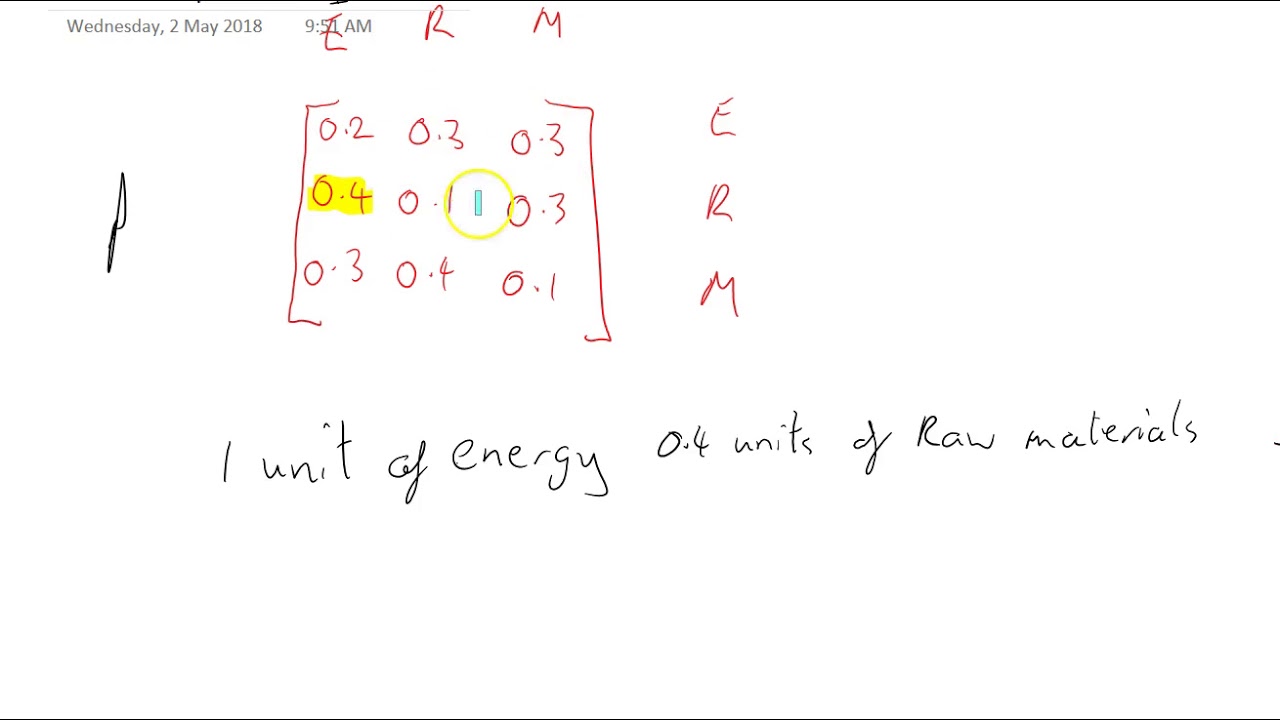 Wednesday, 2 May 2018 9:51 AM
E R M
0.2 0.3 0.3 E
0.4 0.1 0.3 R
0.3 0.4 0.1 M
1 unit of energy 0.4 units of Raw materials